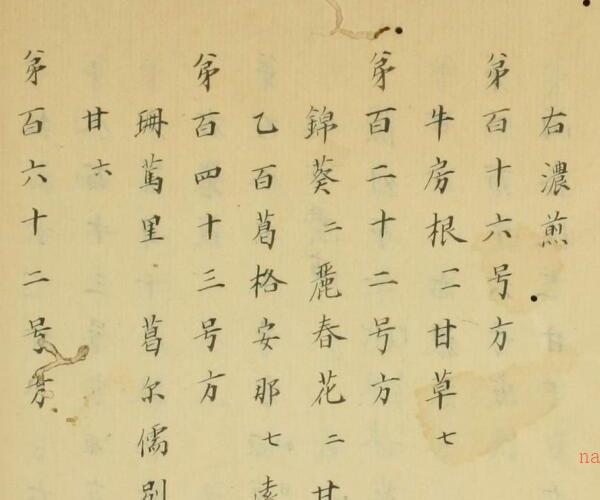 右濃煎
第百十六号方
牛房根二甘草七
第百二十二号方
錦葵二麗春花二甘
乙百葛格安那七
第百四十三号方
珊篤里 葛尔儒別
甘六
第百六十二号方
na